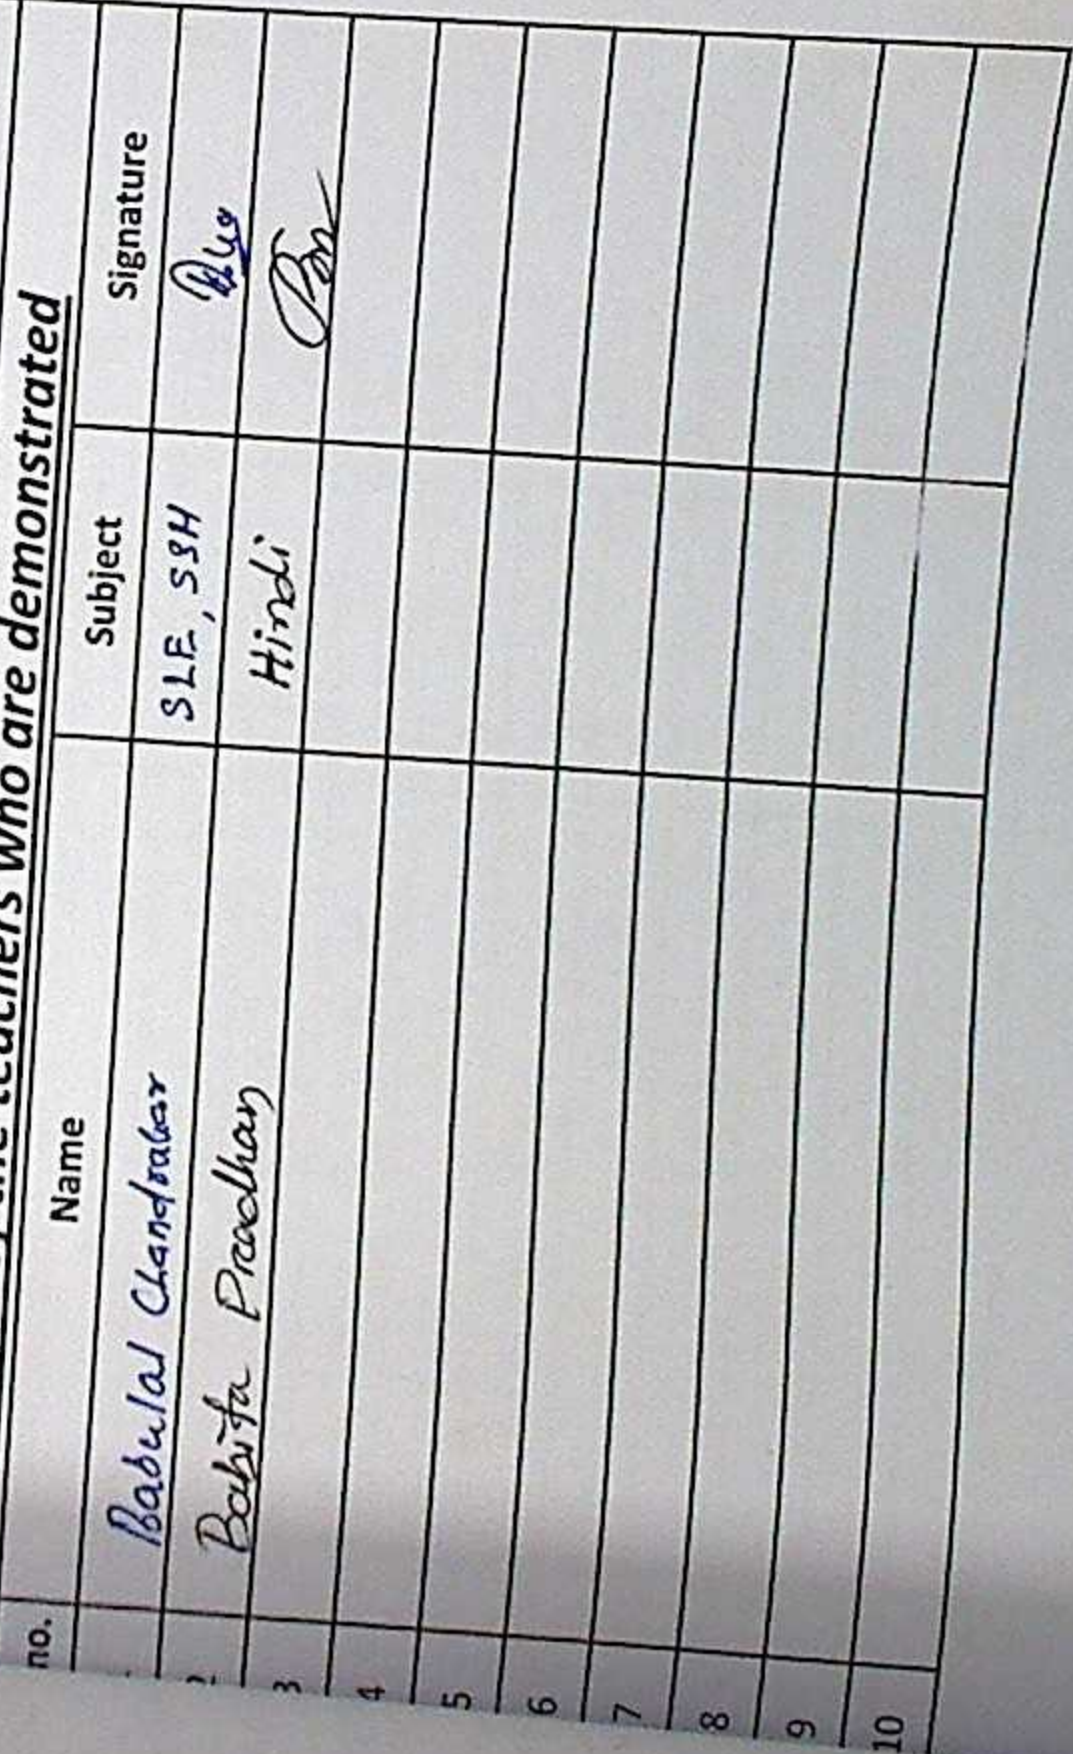 the teachers who are demonstrated
no. Name Subject Signature
Babulal Chandrakar SLE, SSH
2 Babita Pradhan Hindi
3
4
5
6
7
8
9
10